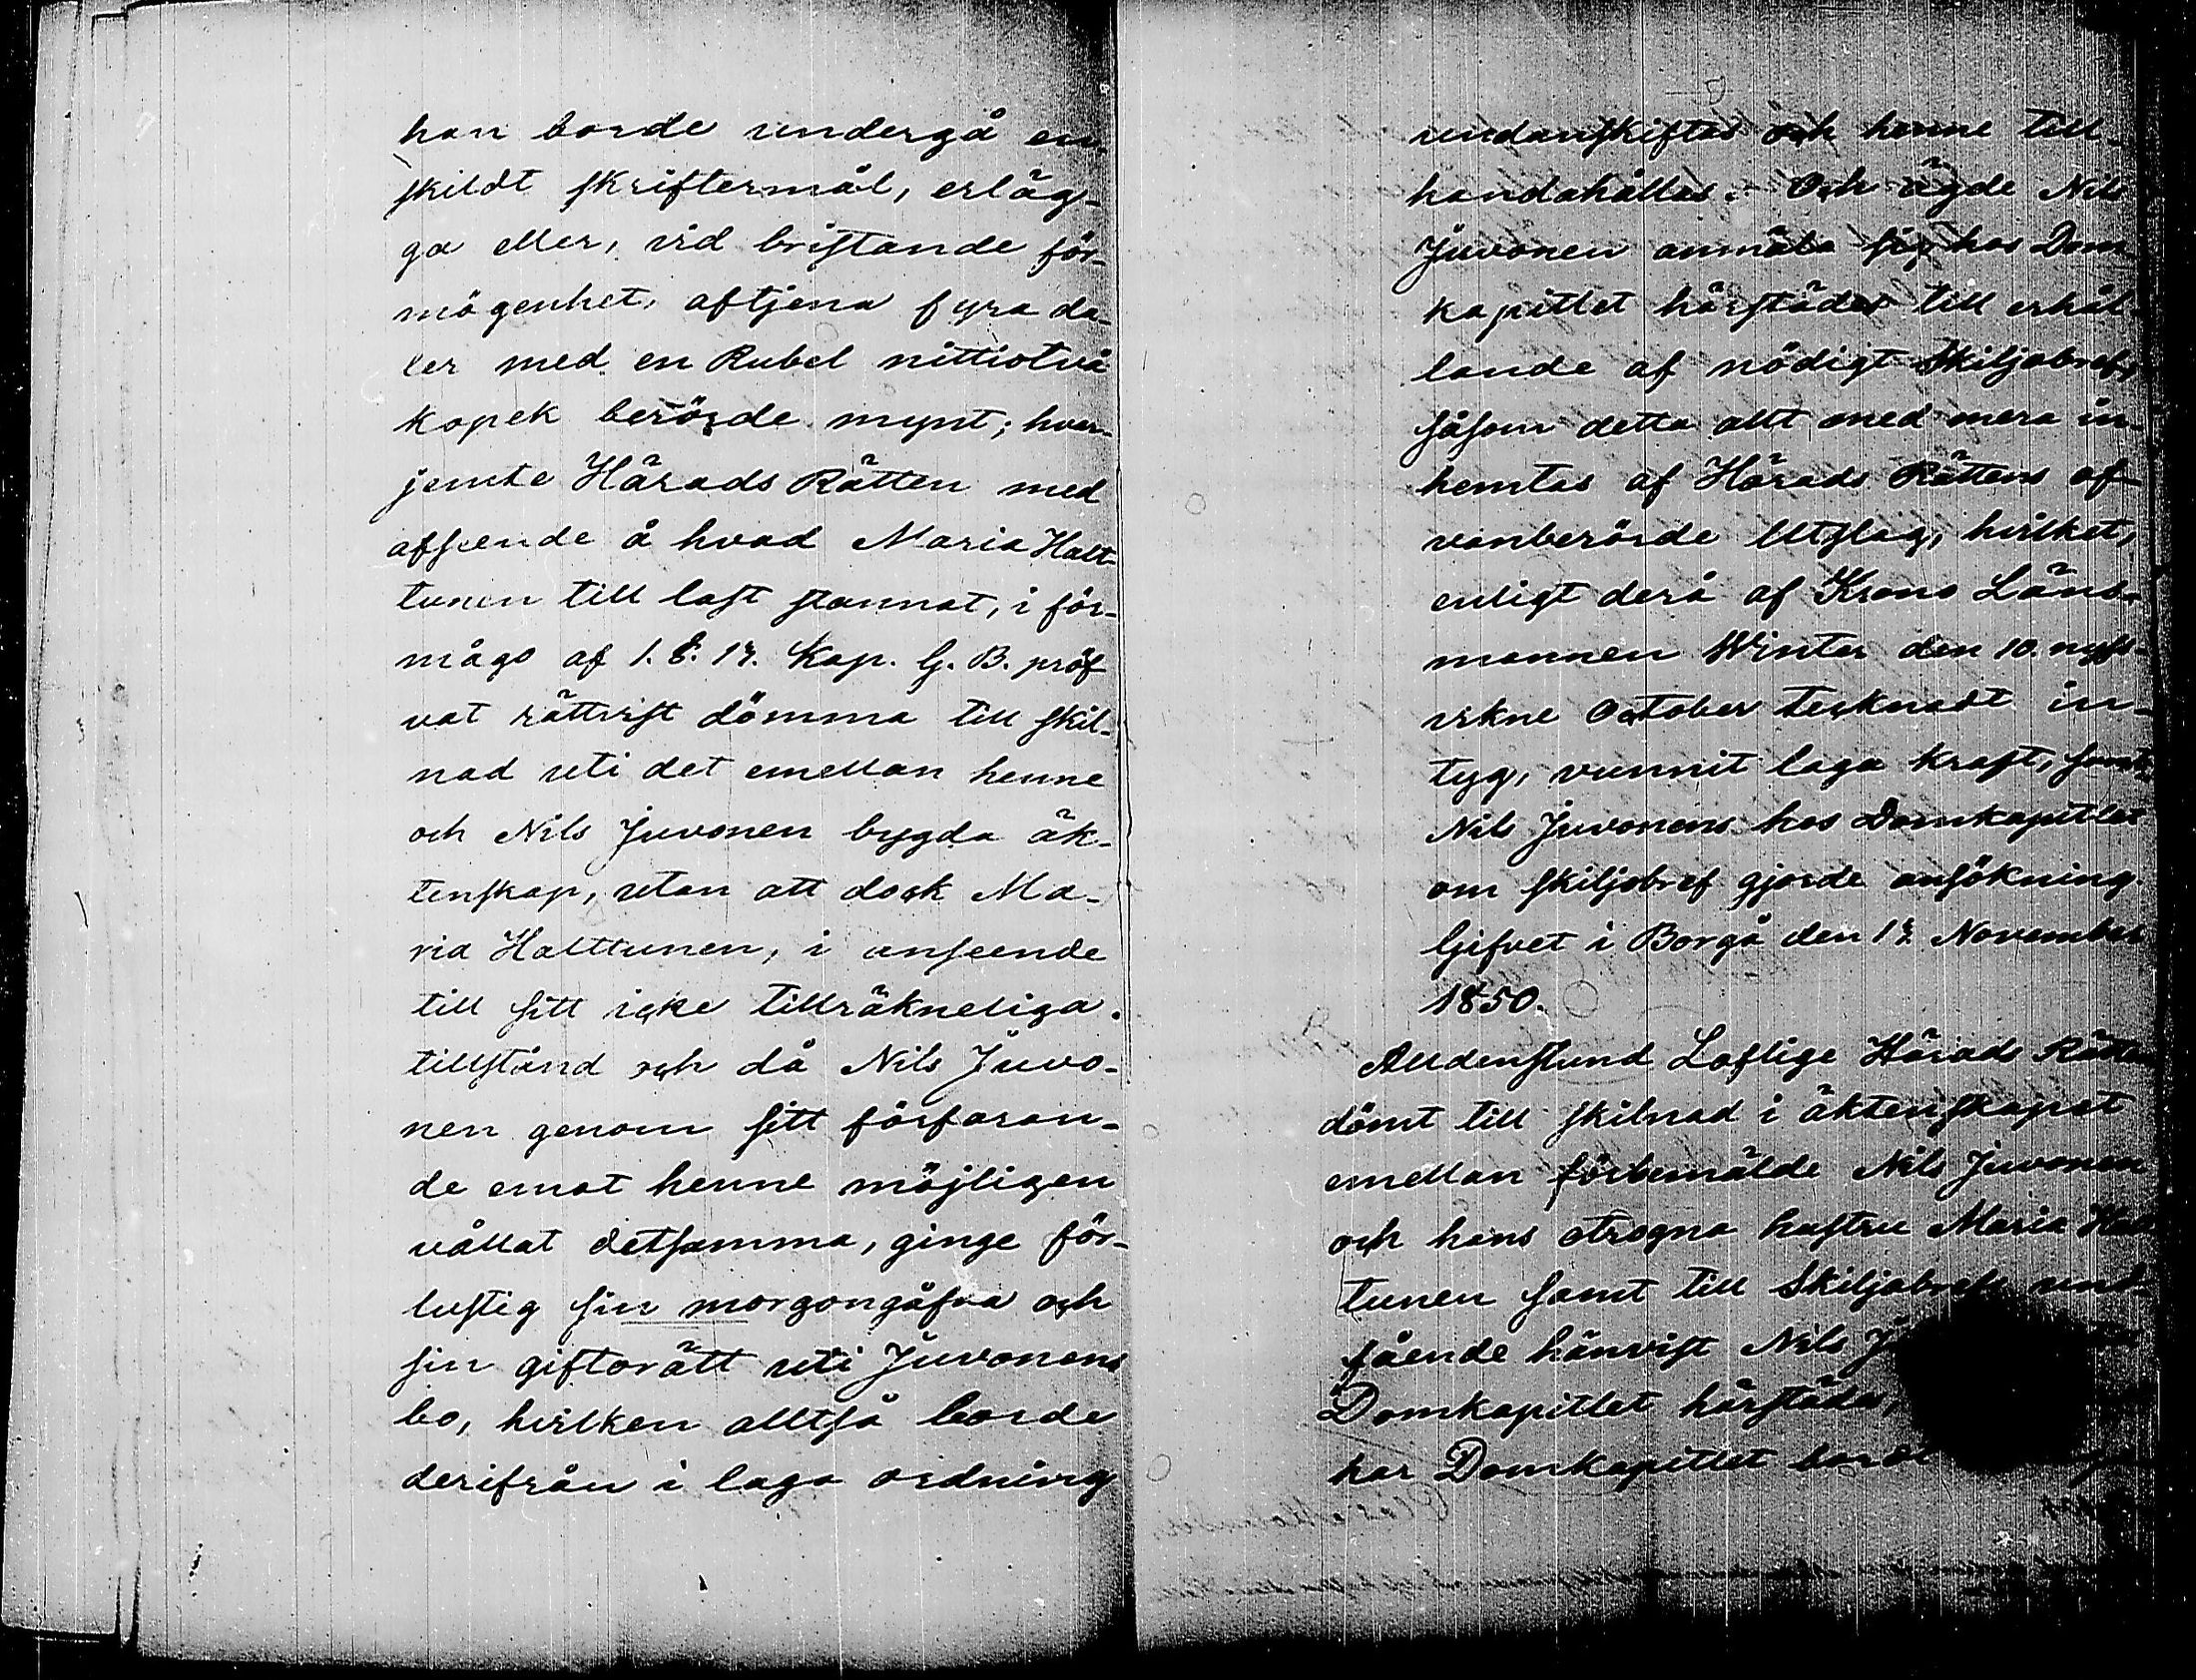 han borde undergå en-
skildt skriftermål, erläg-
ga eller, vid bristande för-
mögenhet, aftjena fyra da-
ler med en Rubel nittiotvå
kopek berörde mynt; hver-
jemte Härads Rätten med
afseende å hvad Maria Halt-
tunen till last stannat, i för-
mågo af 1. §. 13. Kap. G. B. pröf
vat rättvist dömma till skil-
nad uti det emellan henne
och Nils Juvonen bygda äk-
tenskap, utan att dock Ma-
ria Halttunen, i anseende
till sitt icke tillräkneliga
tillstånd och då Nils Juvo-
nen genom sitt förfaran-
de emot henne möjligen
vållat detsamma, ginge för-
lustig sin morgongåfva och
sin giftorätt uti Juvonens
bo, hvilken alltså borde
derifrån i laga ordning
undanskiftas och henne till-
handahållas. Och ägde Nils
Juvonen anmäla sig hos Dom
kapitlet härstädes till erhål-
lande af nödigt Skiljobref,
såsom detta allt med mera in-
hemtas af Härads Rättens of-
vanberörde Utslag, hvilket,
enligt derå af Krono Läns-
mannen Winter den 10. nyss-
vikne October tecknadt in-
tyg, vunnit laga kraft, samt
Nils Juvonens hos Domkapitlet
om skiljobref gjorde ansökning.
Gifvet i Borgå den 13 November
1850.
Alldenstund Loflige Härads Rätten
dömt till skilnad i äktenskapet
emellan förbemälde Nils Juvonen
och hans otrogna hustru Maria Halt
tunen samt till Skiljobrefs und-
fående hänvist Nils
Domkapitlet härstädes,
har Domkapitlet